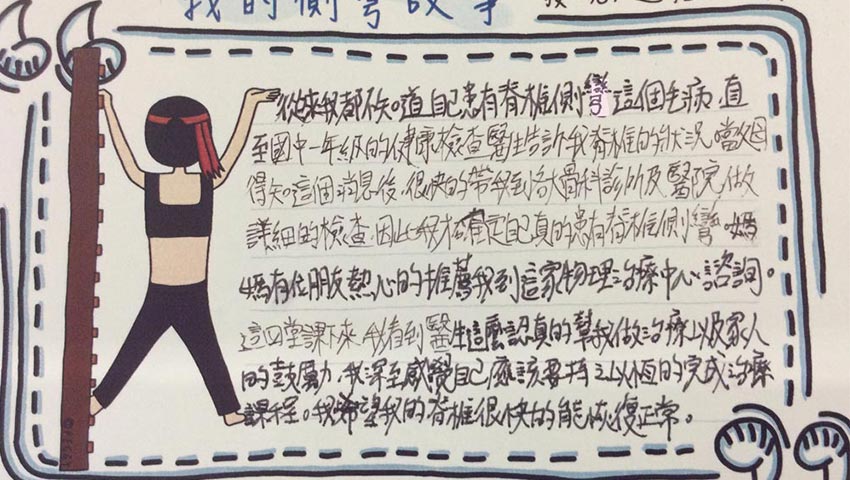 我的側彎故事
從來我都不知道自己患有脊椎側彎這個毛病,直
至國中一年級的健康檢查醫生告訴我脊椎的狀況。當父母
得知這個消息後,很快的帶我到各大骨科診所及醫院做
詳細的檢查,因此我才確定自己真的患有脊椎側彎。媽
媽有位朋友熱心的推薦我到這家物理治療中心諮詢。
這四堂課下來,我看到醫生這麼認真的幫我做治療以及家人
的鼓勵,我深至感覺自己應該要持之以恆的完成治療
課程。我希望我的脊椎很快的能恢復正常。